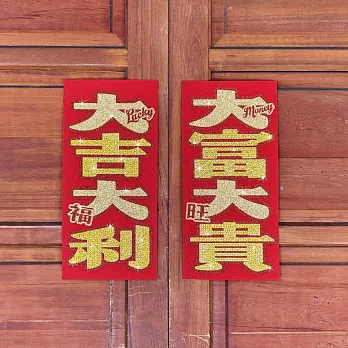 大吉大利
Lucky
福
大富大貴
Money
旺